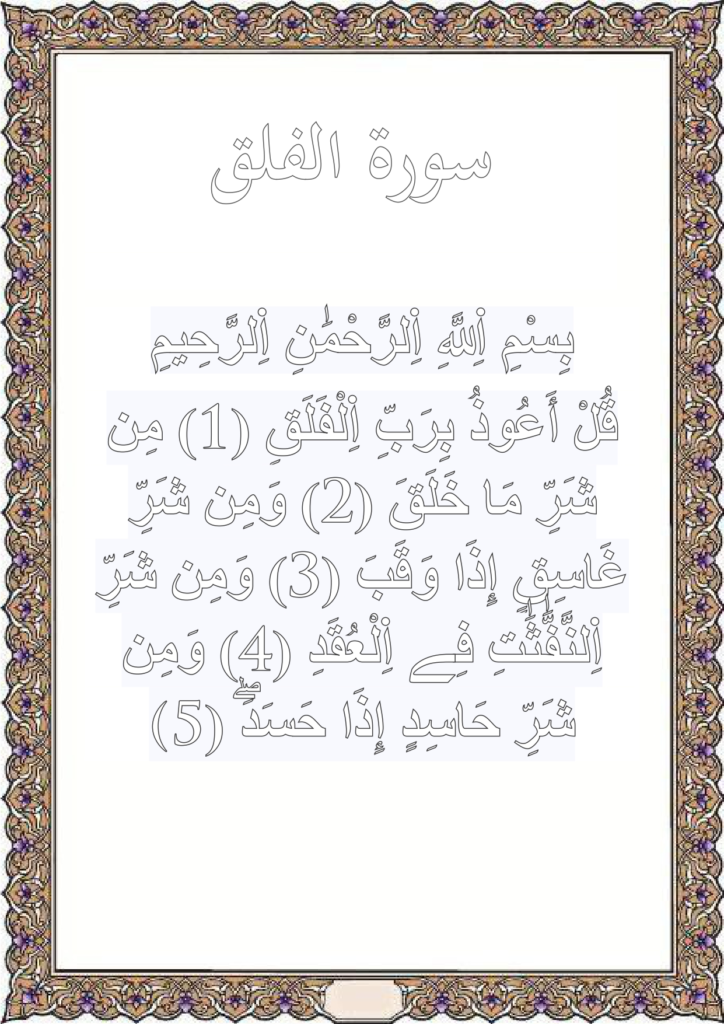 سورة الفلق
بِسْمِ اِ۬للَّهِ اِ۬لرَّحْمَٰنِ اِ۬لرَّحِيمِ
قُلْ أَعُوذُ بِرَبِّ اِ۬لْفَلَقِ (1) مِن
شَرِّ مَا خَلَقَ (2) وَمِن شَرِّ
غَاسِقٍ إِذَا وَقَبَ (3) وَمِن شَرِّ
اِ۬لنَّفَّٰثَٰتِ فِے اِ۬لْعُقَدِ (4) وَمِن
شَرِّ حَاسِدٍ إِذَا حَسَدَۖ (5)